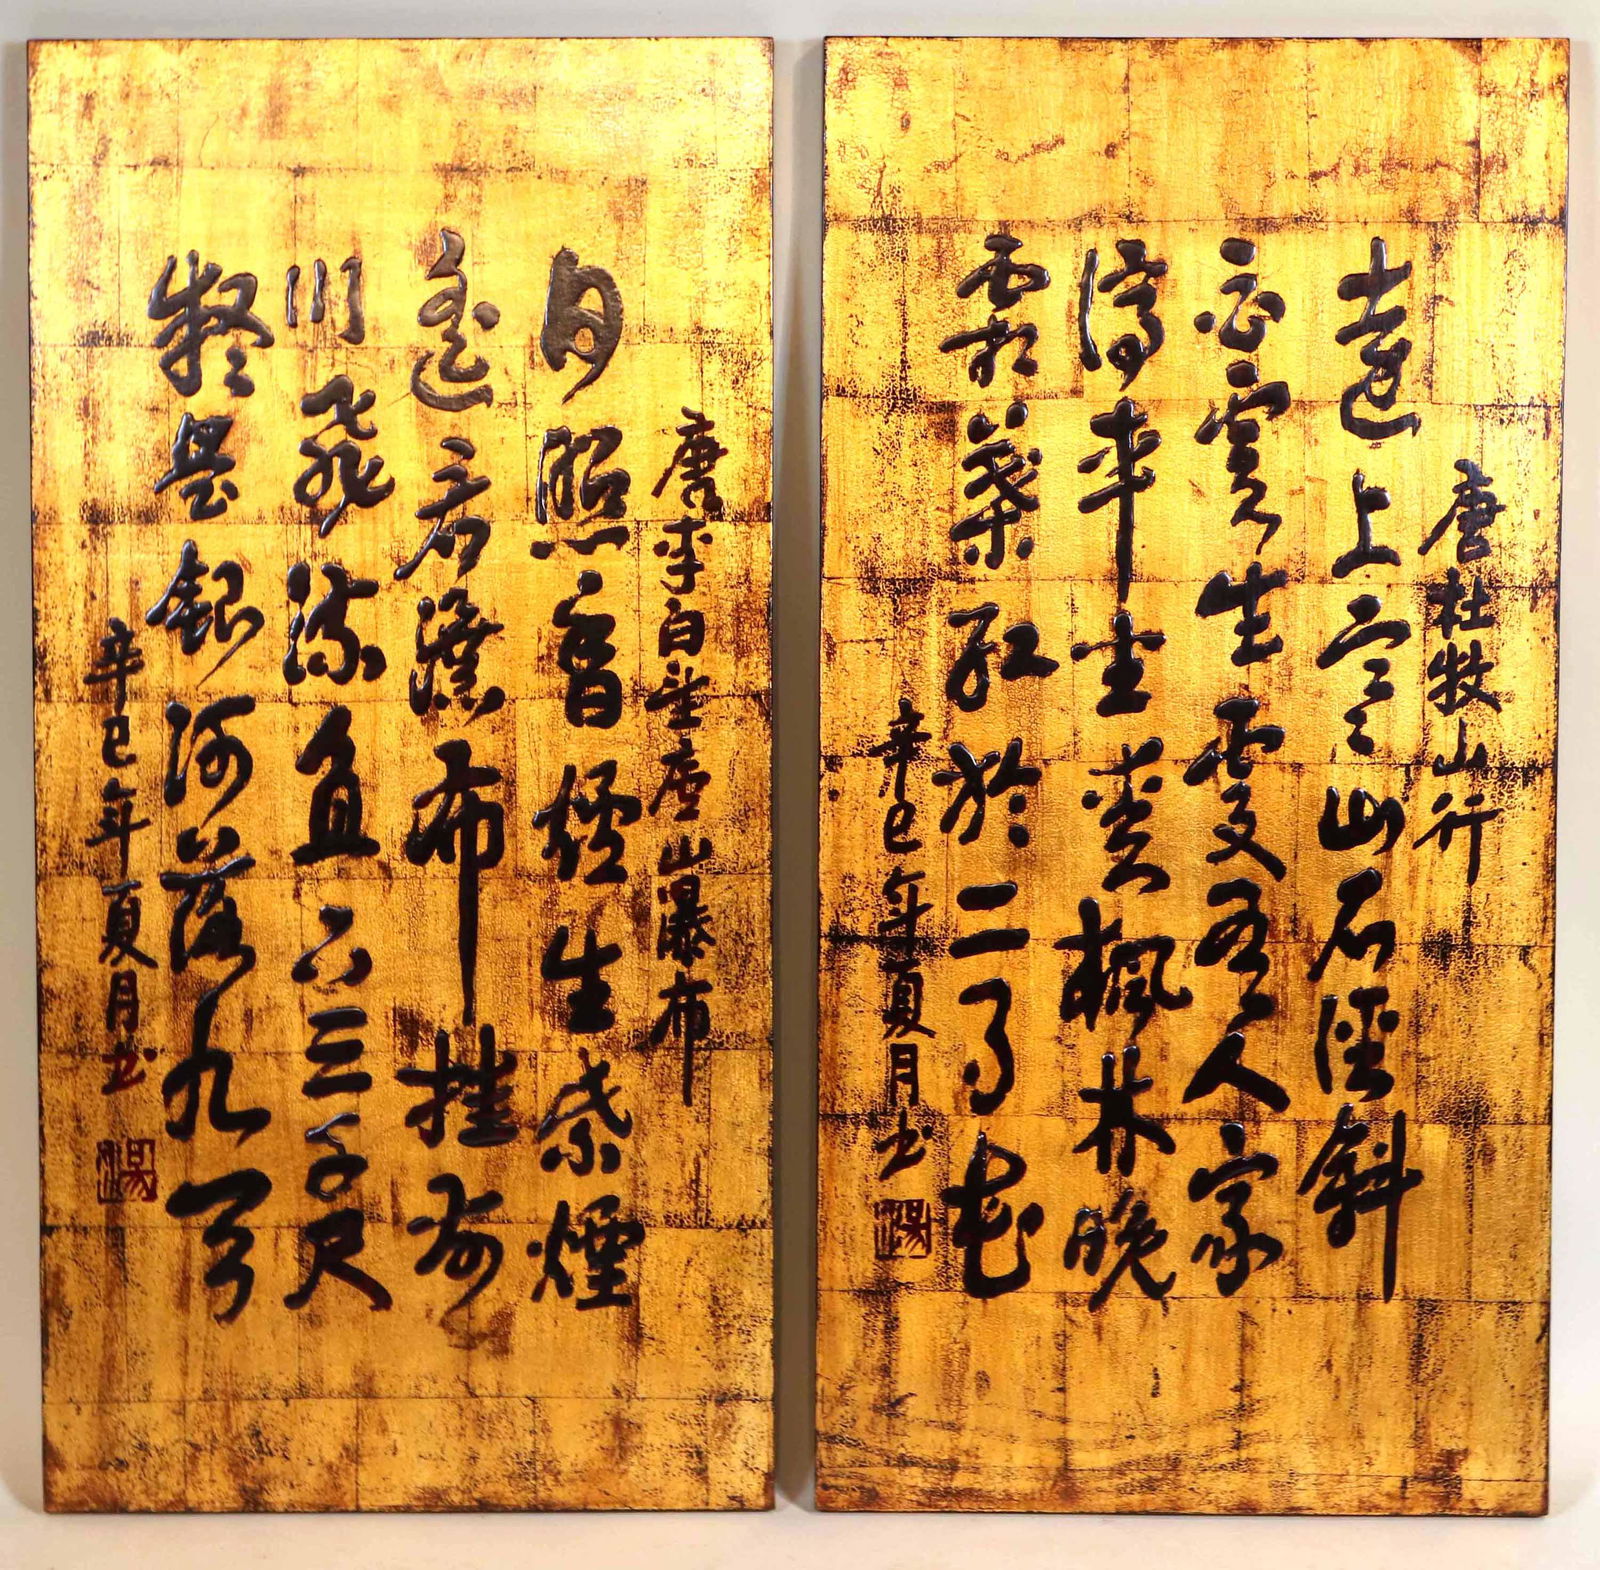 唐杜牧山行
遠上寒山石徑斜
白雲生處有人家
停車坐愛楓林晚
霜葉紅於二月花
辛巳年夏月书
唐李白望庐山瀑布
日照香爐生紫煙
遙看瀑布挂前
川飛流直下三千尺
疑是銀河落九天
辛巳年夏月书